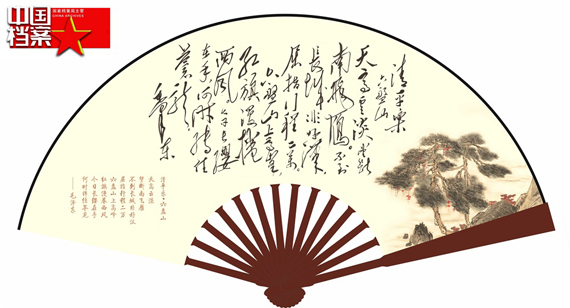 中国
档案
国家档案局主管
CHINA ARCHIVES
清平樂
六盤山
天高雲淡 望斷
南飛雁 不到
長城非好漢
屈指行程二萬
六盤山上高峰
紅旗漫捲
西風 今日長纓
在手 何時縛住
蒼龍
毛澤東
清平乐·六盘山
天高云淡
望断南飞雁
不到长城非好汉
屈指行程二万
六盘山上高峰
红旗漫卷西风
今日长缨在手
何时缚住苍龙
——毛泽东